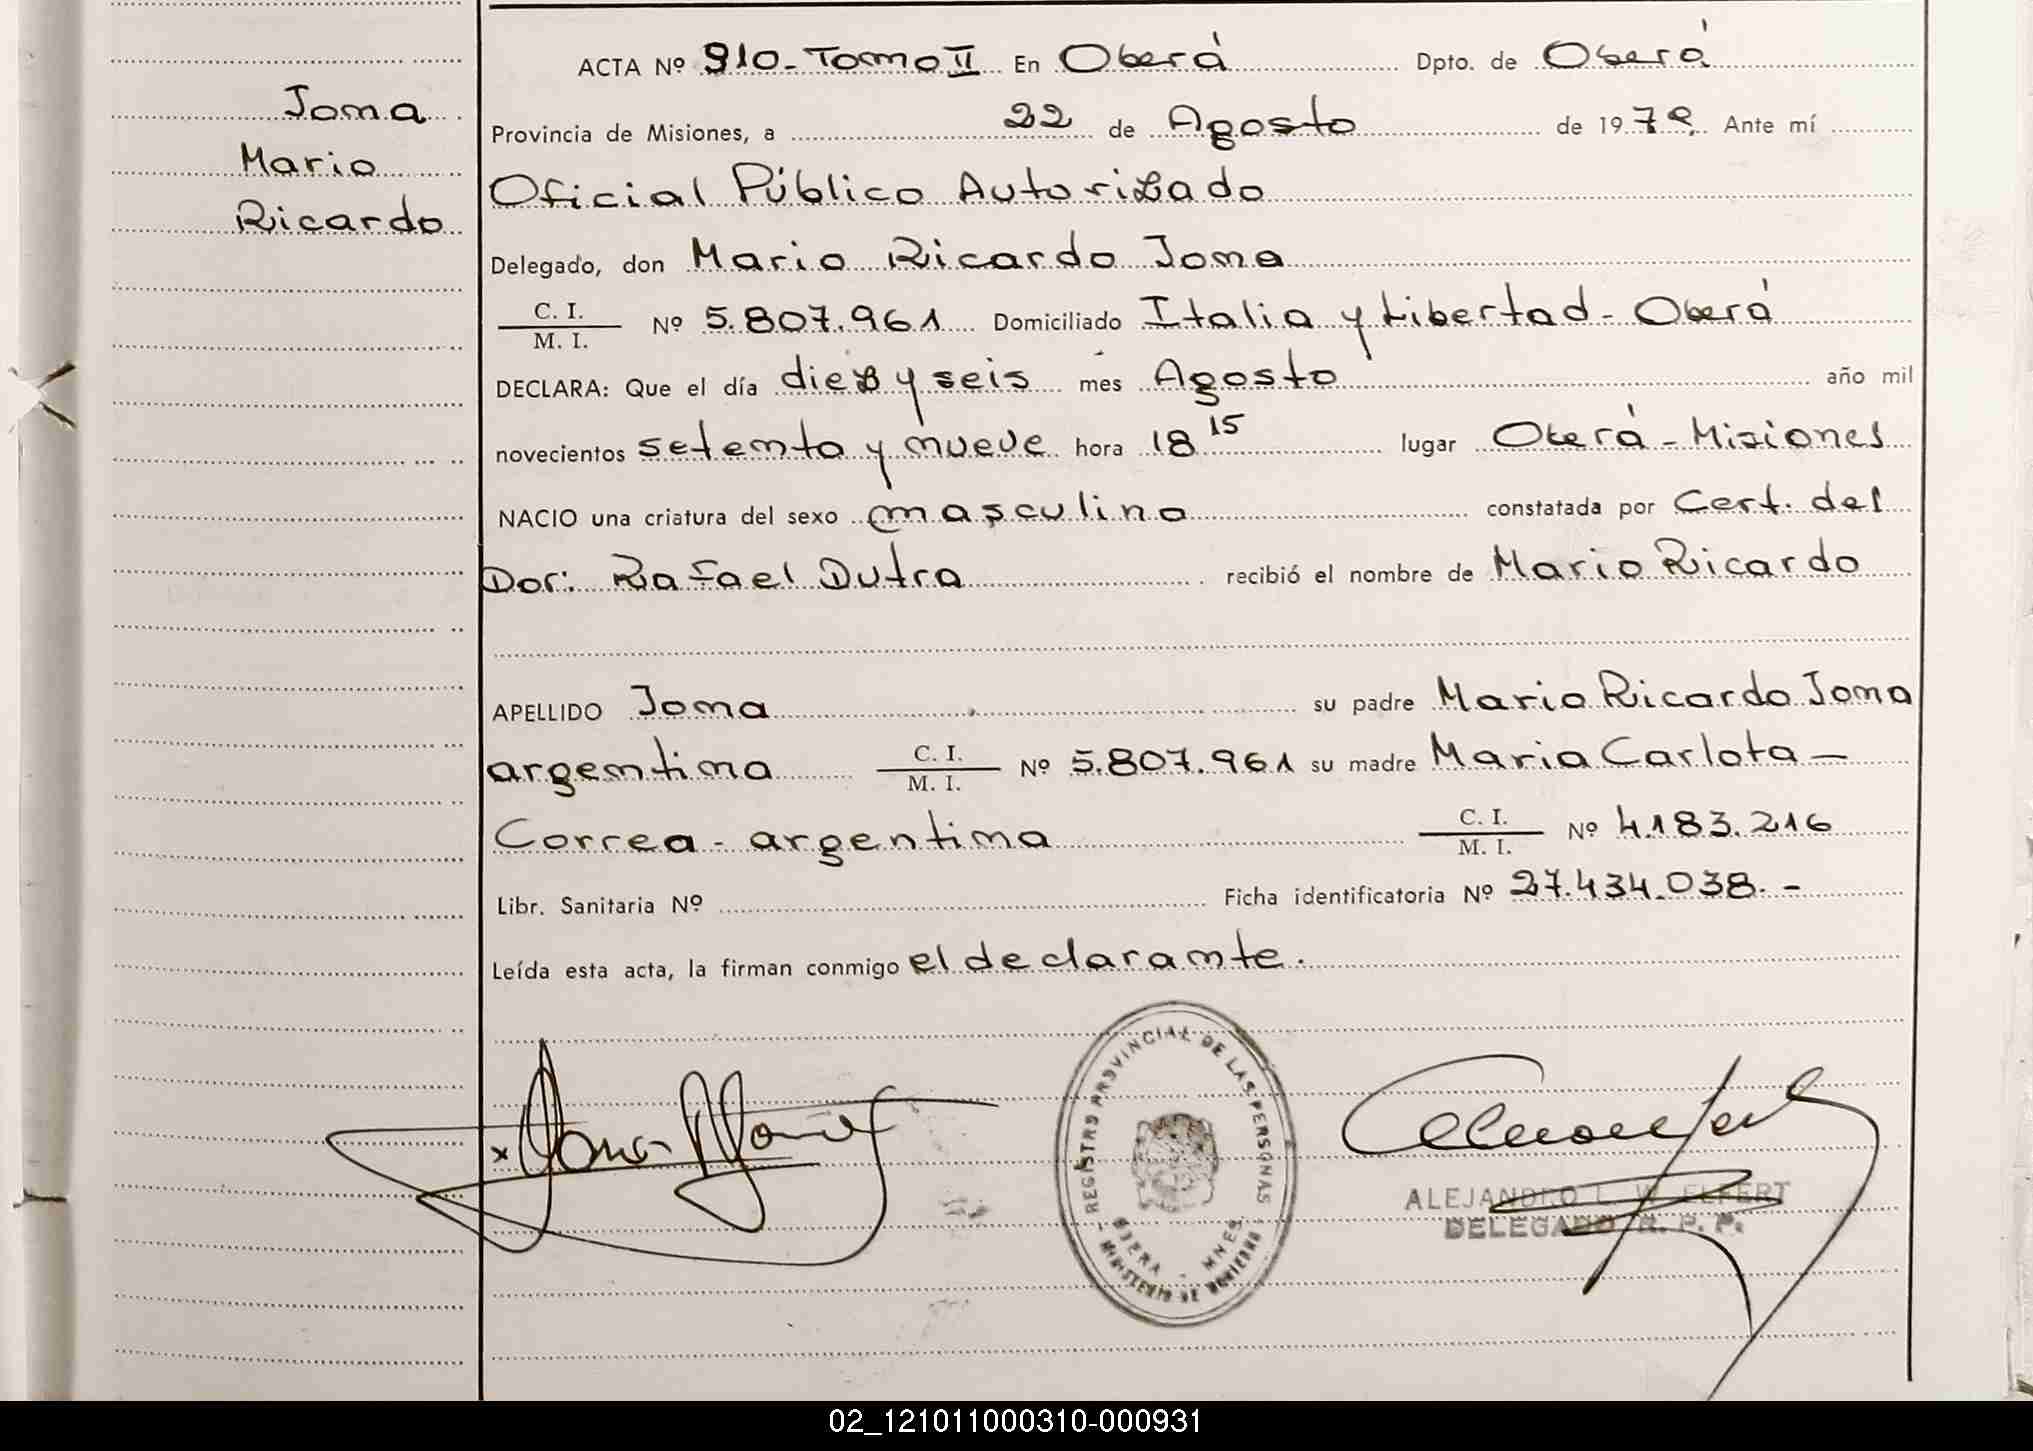 Joma
Mario
Ricardo
ACTA Nº 910-Tomo II En Oberá Dpto. de Oberá
Provincia de Misiones, a 22 de Agosto de 1979. Ante mí
Oficial Público Autorizado
Delegado, don Mario Ricardo Joma
C. I.
M. I. Nº 5.807.961 Domiciliado Italia y Libertad - Oberá
DECLARA: Que el día diez y seis mes Agosto año mil
novecientos setenta y nueve hora 18 15 lugar Oberá - Misiones
NACIO una criatura del sexo masculino constatada por Cert. del
Dor: Rafael Dutra recibió el nombre de Mario Ricardo
APELLIDO Joma su padre Mario Ricardo Joma
argentina C. I.
M. I. Nº 5.807.961 su madre Maria Carlota -
Correa - argentina C. I.
M. I. Nº 4.183.216
Libr. Sanitaria Nº Ficha identificatoria Nº 27.434.038.-
Leída esta acta, la firman conmigo el declarante.
REGISTRO PROVINCIAL DE LAS PERSONAS
OBERA - MNES
MINISTERIO DE GOBIERNO
ALEJANDRO L. W. ELFERT
DELEGADO R. P. P.
02_121011000310-000931